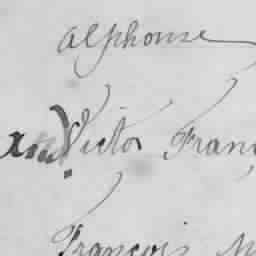 alphonse
Victor Fran
François